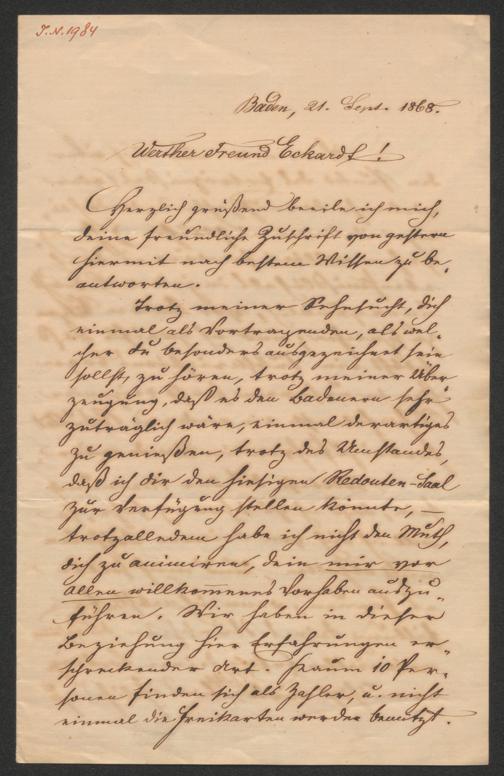 I. N. 1984
Baden, 21. Sept. 1868.
Werther Freund Eckardt!
Herzlich grüßend beeile ich mich,
deine freundliche Zuschrift von gestern
hiermit nach bestem Wissen zu be-
antworten.
Trotz meiner Sehnsucht, dich
einmal als Vortragenden, als wel-
cher du besonders ausgezeichnet sein
sollst, zu hören, trotz meiner Über
zeugung, daß es den Badenern sehr
zuträglich wäre, einmal derartiges
zu genießen, trotz des Umstandes,
daß ich dir den hiesigen Redouten-Saal
zur Verfügung stellen könnte, —
trotzalledem habe ich nicht den Muth,
dich zu animiren, dein mir vor
allen willkommenes Vorhaben auszu-
führen. Wir haben in dieser
Beziehung hier Erfahrungen er-
schreckender Art. Kaum 10 Per-
sonen finden sich als Zahler, u. nicht
einmal die Freikarten werden benützt.